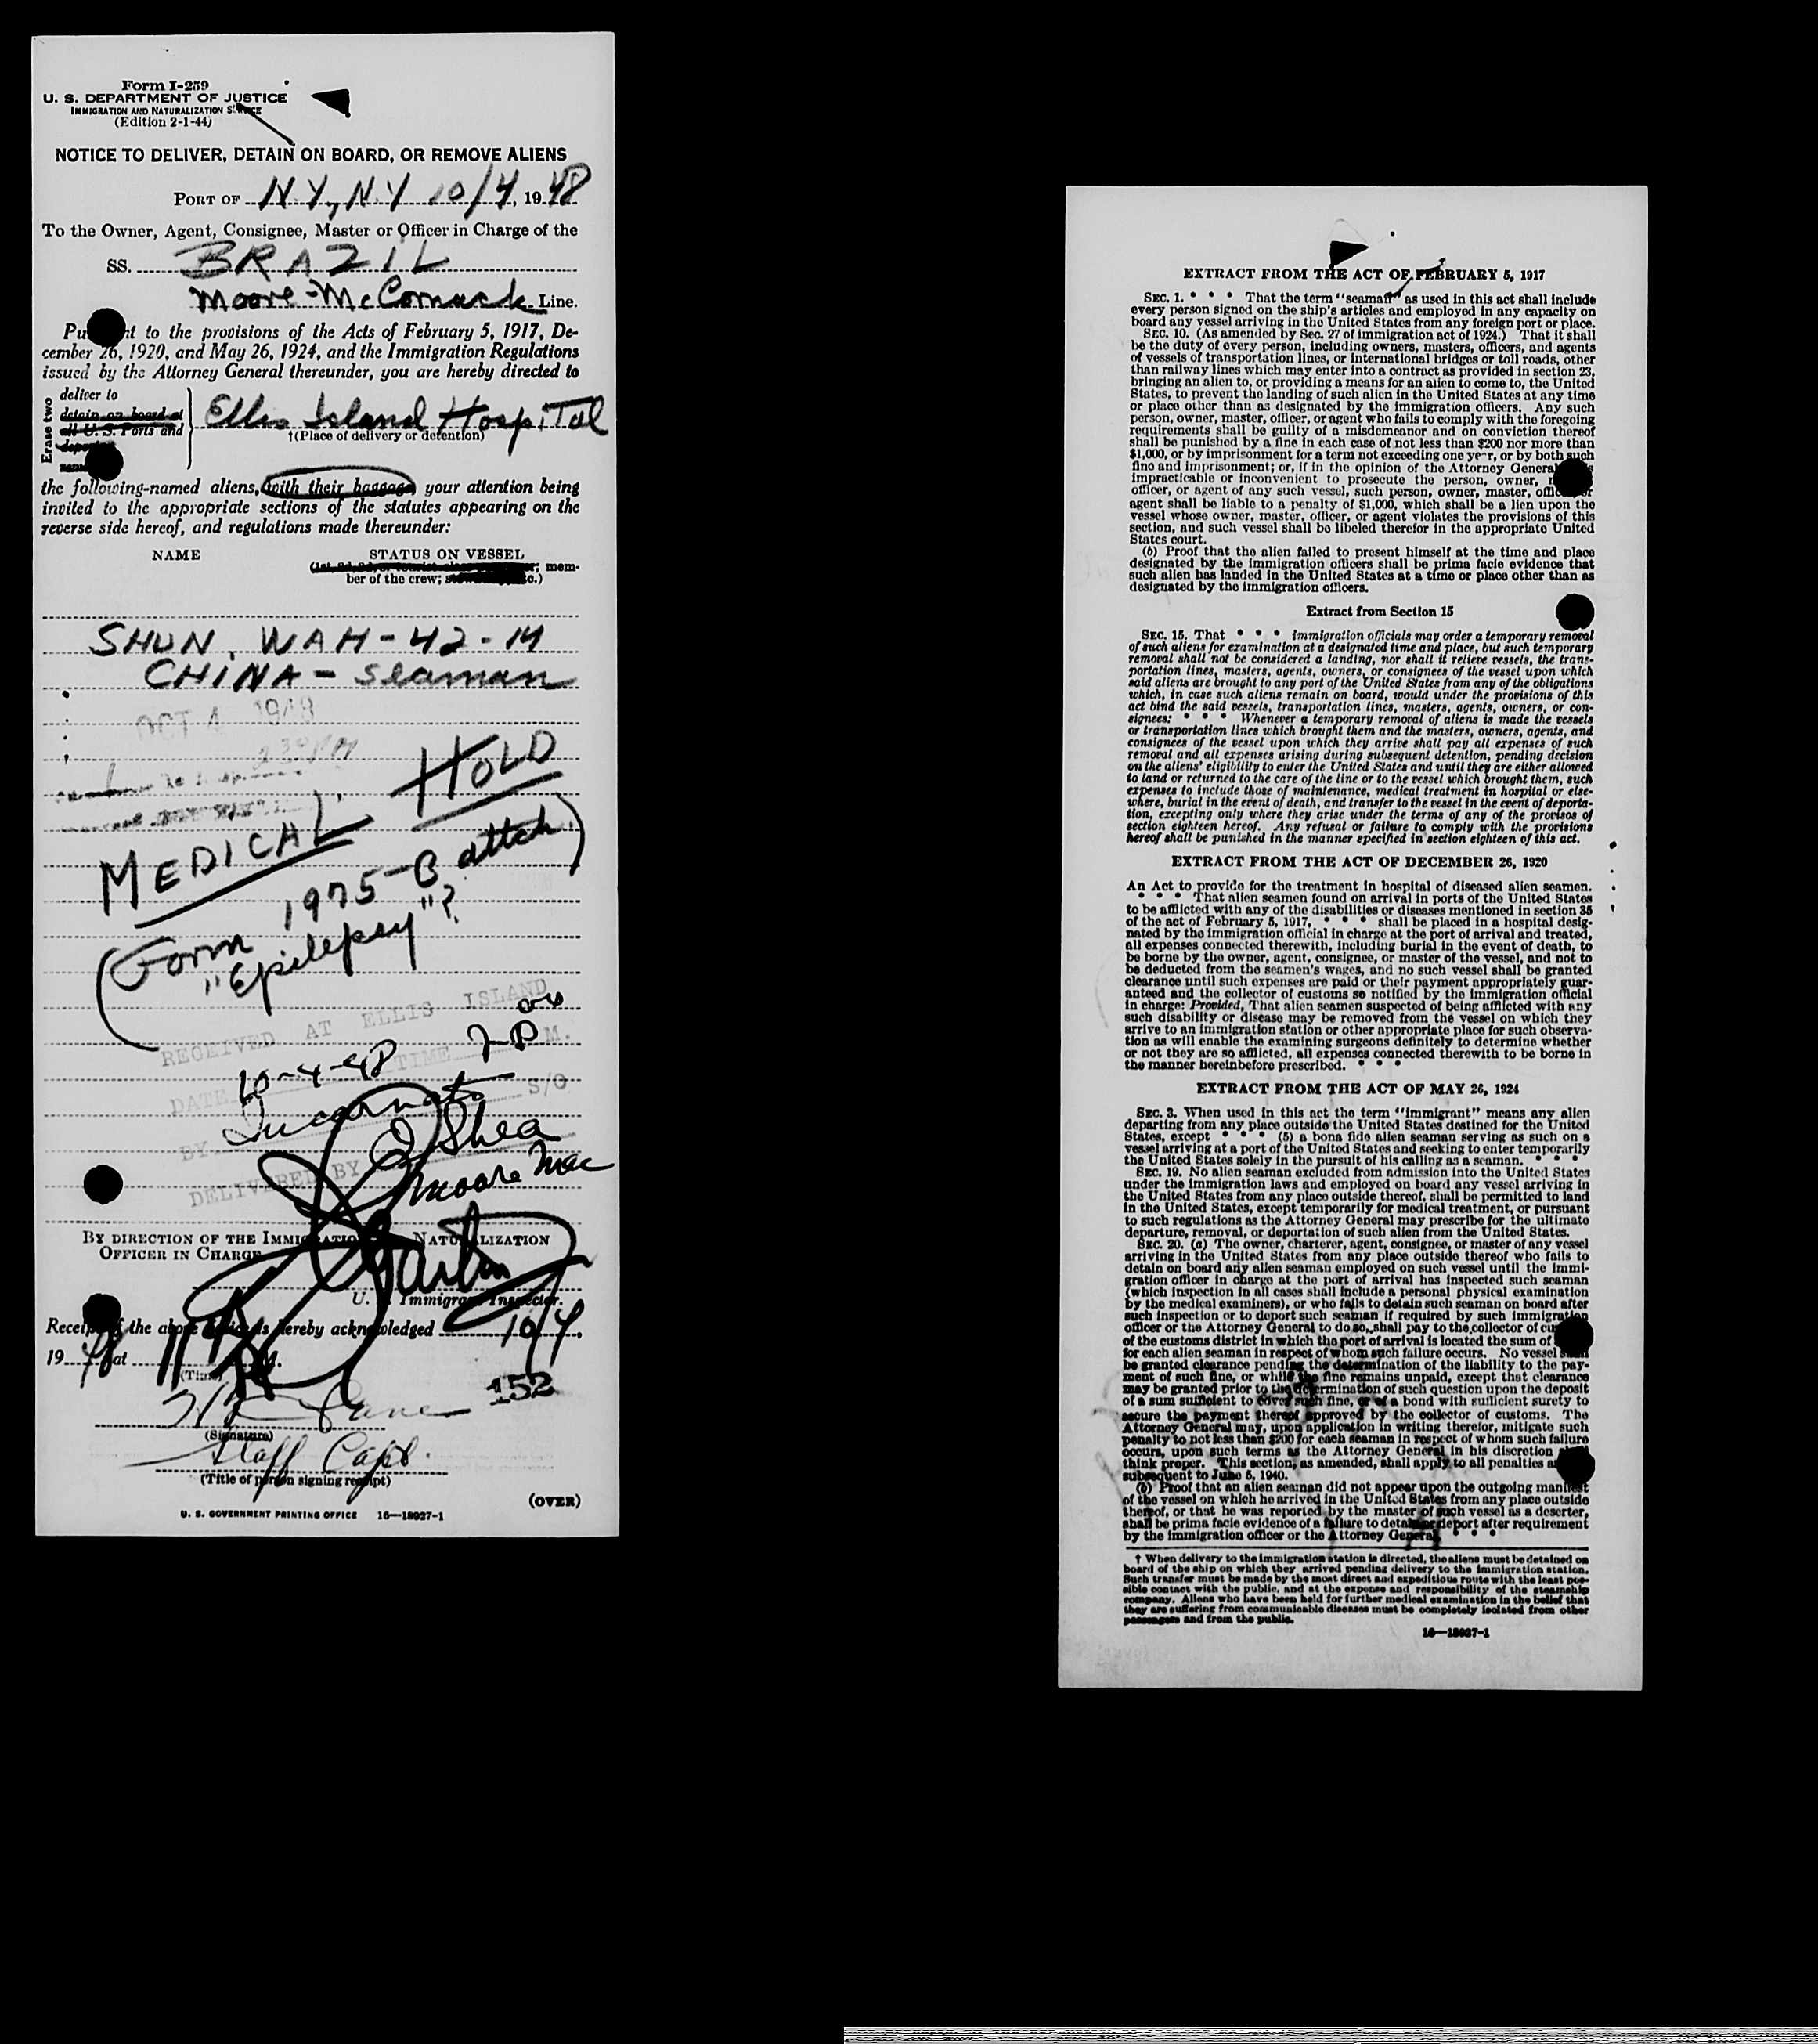 Form I-259
U. S. DEPARTMENT OF JUSTICE
IMMIGRATION AND NATURALIZATION SERVICE
(Edition 2-1-44)
NOTICE TO DELIVER, DETAIN ON BOARD, OR REMOVE ALIENS
PORT OF N.Y., N.Y 10/4, 1948
To the Owner, Agent, Consignee, Master or Officer in Charge of the
SS. BRAZIL
Moore-McCormack Line.
Pu t to the provisions of the Acts of February 5, 1917, De-
cember 26, 1920, and May 26, 1924, and the Immigration Regulations
issued by the Attorney General thereunder, you are hereby directed to
Erase two
deliver to
detain on board at
all U. S. Ports and
Ellis Island Hospital
†(Place of delivery or detention)
the following-named aliens, with their baggage, your attention being
invited to the appropriate sections of the statutes appearing on the
reverse side hereof, and regulations made thereunder:
NAME STATUS ON VESSEL
; mem-
ber of the crew; c.)
SHUN, WAH-42-M
CHINA - Seaman
OCT 4 1948
MEDICAL HOLD
(Form 1975-B attch)
"Epilepsy"?
RECEIVED AT ELLIS ISLAND
DATE 10-4-48 TIME 2 P M.
BY S/O
DELIVERED BY O'Shea
Moore Mac
BY DIRECTION OF THE IMMIGRATION NATURALIZATION
OFFICER IN CHARGE
U. Immigrant Inspector.
Receipt of the above is hereby acknowledged 10/4,
1948 at M.
(Time)
152
(Signature)
Staff Capt.
(Title of person signing receipt)
(OVER)
U. S. GOVERNMENT PRINTING OFFICE 16—18927-1
EXTRACT FROM THE ACT OF FEBRUARY 5, 1917
SEC. 1. * * * That the term "seaman" as used in this act shall include
every person signed on the ship's articles and employed in any capacity on
board any vessel arriving in the United States from any foreign port or place.
SEC. 10. (As amended by Sec. 27 of immigration act of 1924.) That it shall
be the duty of every person, including owners, masters, officers, and agents
of vessels of transportation lines, or international bridges or toll roads, other
than railway lines which may enter into a contract as provided in section 23,
bringing an alien to, or providing a means for an alien to come to, the United
States, to prevent the landing of such alien in the United States at any time
or place other than as designated by the immigration officers. Any such
person, owner, master, officer, or agent who fails to comply with the foregoing
requirements shall be guilty of a misdemeanor and on conviction thereof
shall be punished by a fine in each case of not less than $200 nor more than
$1,000, or by imprisonment for a term not exceeding one year, or by both such
fine and imprisonment; or, if in the opinion of the Attorney General
impracticable or inconvenient to prosecute the person, owner,
officer, or agent of any such vessel, such person, owner, master, officer, or
agent shall be liable to a penalty of $1,000, which shall be a lien upon the
vessel whose owner, master, officer, or agent violates the provisions of this
section, and such vessel shall be libeled therefor in the appropriate United
States court.
(b) Proof that the alien failed to present himself at the time and place
designated by the immigration officers shall be prima facie evidence that
such alien has landed in the United States at a time or place other than as
designated by the immigration officers.
Extract from Section 15
SEC. 15. That * * * immigration officials may order a temporary removal
of such aliens for examination at a designated time and place, but such temporary
removal shall not be considered a landing, nor shall it relieve vessels, the trans-
portation lines, masters, agents, owners, or consignees of the vessel upon which
said aliens are brought to any port of the United States from any of the obligations
which, in case such aliens remain on board, would under the provisions of this
act bind the said vessels, transportation lines, masters, agents, owners, or con-
signees: * * * Whenever a temporary removal of aliens is made the vessels
or transportation lines which brought them and the masters, owners, agents, and
consignees of the vessel upon which they arrive shall pay all expenses of such
removal and all expenses arising during subsequent detention, pending decision
on the aliens' eligibility to enter the United States and until they are either allowed
to land or returned to the care of the line or to the vessel which brought them, such
expenses to include those of maintenance, medical treatment in hospital or else-
where, burial in the event of death, and transfer to the vessel in the event of deporta-
tion, excepting only where they arise under the terms of any of the provisos of
section eighteen hereof. Any refusal or failure to comply with the provisions
hereof shall be punished in the manner specified in section eighteen of this act.
EXTRACT FROM THE ACT OF DECEMBER 26, 1920
An Act to provide for the treatment in hospital of diseased alien seamen.
* * * That alien seamen found on arrival in ports of the United States
to be afflicted with any of the disabilities or diseases mentioned in section 35
of the act of February 5, 1917, * * * shall be placed in a hospital desig-
nated by the immigration official in charge at the port of arrival and treated,
all expenses connected therewith, including burial in the event of death, to
be borne by the owner, agent, consignee, or master of the vessel, and not to
be deducted from the seamen's wages, and no such vessel shall be granted
clearance until such expenses are paid or their payment appropriately guar-
anteed and the collector of customs so notified by the immigration official
in charge: Provided, That alien seamen suspected of being afflicted with any
such disability or disease may be removed from the vessel on which they
arrive to an immigration station or other appropriate place for such observa-
tion as will enable the examining surgeons definitely to determine whether
or not they are so afflicted, all expenses connected therewith to be borne in
the manner hereinbefore prescribed. * * *
EXTRACT FROM THE ACT OF MAY 26, 1924
SEC. 3. When used in this act the term "immigrant" means any alien
departing from any place outside the United States destined for the United
States, except * * * (5) a bona fide alien seaman serving as such on a
vessel arriving at a port of the United States and seeking to enter temporarily
the United States solely in the pursuit of his calling as a seaman. * * *
SEC. 19. No alien seaman excluded from admission into the United States
under the immigration laws and employed on board any vessel arriving in
the United States from any place outside thereof, shall be permitted to land
in the United States, except temporarily for medical treatment, or pursuant
to such regulations as the Attorney General may prescribe for the ultimate
departure, removal, or deportation of such alien from the United States.
SEC. 20. (a) The owner, charterer, agent, consignee, or master of any vessel
arriving in the United States from any place outside thereof who fails to
detain on board any alien seaman employed on such vessel until the immi-
gration officer in charge at the port of arrival has inspected such seaman
(which inspection in all cases shall include a personal physical examination
by the medical examiners), or who fails to detain such seaman on board after
such inspection or to deport such seaman if required by such immigration
officer or the Attorney General to do so, shall pay to the collector of
of the customs district in which the port of arrival is located the sum of
for each alien seaman in respect of whom such failure occurs. No vessel shall
be granted clearance pending the determination of the liability to the pay-
ment of such fine, or while the fine remains unpaid, except that clearance
may be granted prior to the determination of such question upon the deposit
of a sum sufficient to cover such fine, or of a bond with sufficient surety to
secure the payment thereof approved by the collector of customs. The
Attorney General may, upon application in writing therefor, mitigate such
penalty to not less than $200 for each seaman in respect of whom such failure
occurs, upon such terms as the Attorney General in his discretion
think proper. This section, as amended, shall apply to all penalties
subsequent to June 5, 1940.
(b) Proof that an alien seaman did not appear upon the outgoing manifest
of the vessel on which he arrived in the United States from any place outside
thereof, or that he was reported by the master of such vessel as a deserter,
shall be prima facie evidence of a failure to detain or deport after requirement
by the immigration officer or the Attorney General. * * *
† When delivery to the immigration station is directed, the aliens must be detained on
board of the ship on which they arrived pending delivery to the immigration station.
Such transfer must be made by the most direct and expeditious route with the least pos-
sible contact with the public, and at the expense and responsibility of the steamship
company. Aliens who have been held for further medical examination in the belief that
they are suffering from communicable diseases must be completely isolated from other
passengers and from the public.
16—18927-1